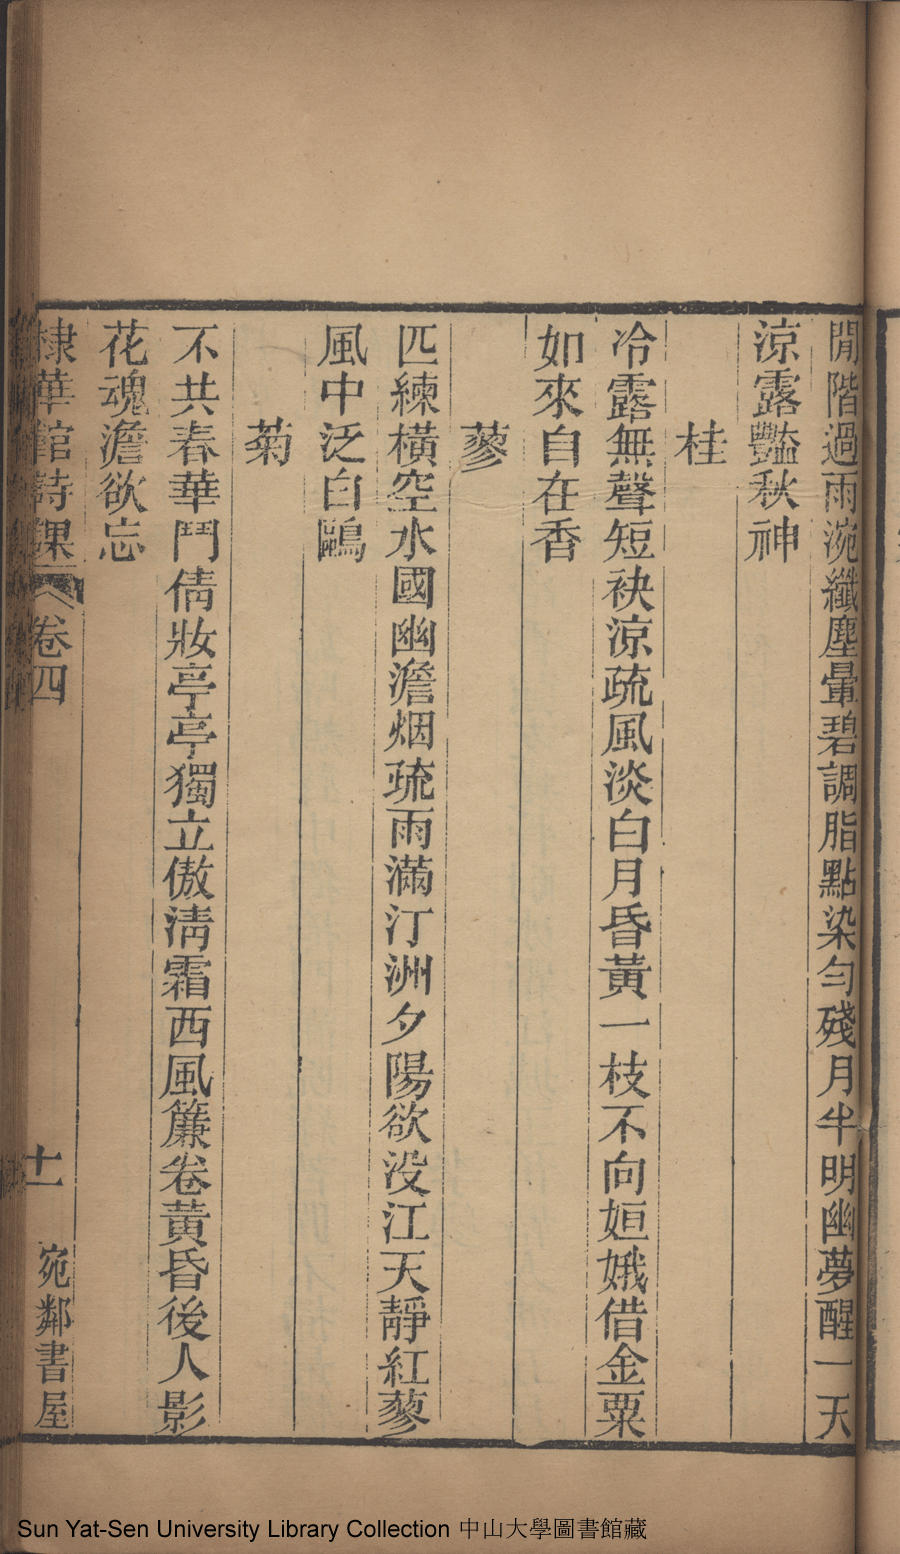 閒階過雨涴纖塵暈碧調脂點染勻殘月半明幽夢醒一天
涼露豔秋神
桂
冷露無聲短袂涼疏風淡白月昏黃一枝不向姮娥借金粟
如來自在香
蓼
匹練橫空水國幽澹烟疏雨滿汀洲夕陽欲没江天靜紅蓼
風中泛白鷗
菊
不共春華鬥倩妝亭亭獨立傲淸霜西風簾卷黃昏後人影
花魂澹欲忘
棣華館詩課 卷四 十一 宛鄰書屋
Sun Yat-Sen University Library Collection 中山大學圖書館藏